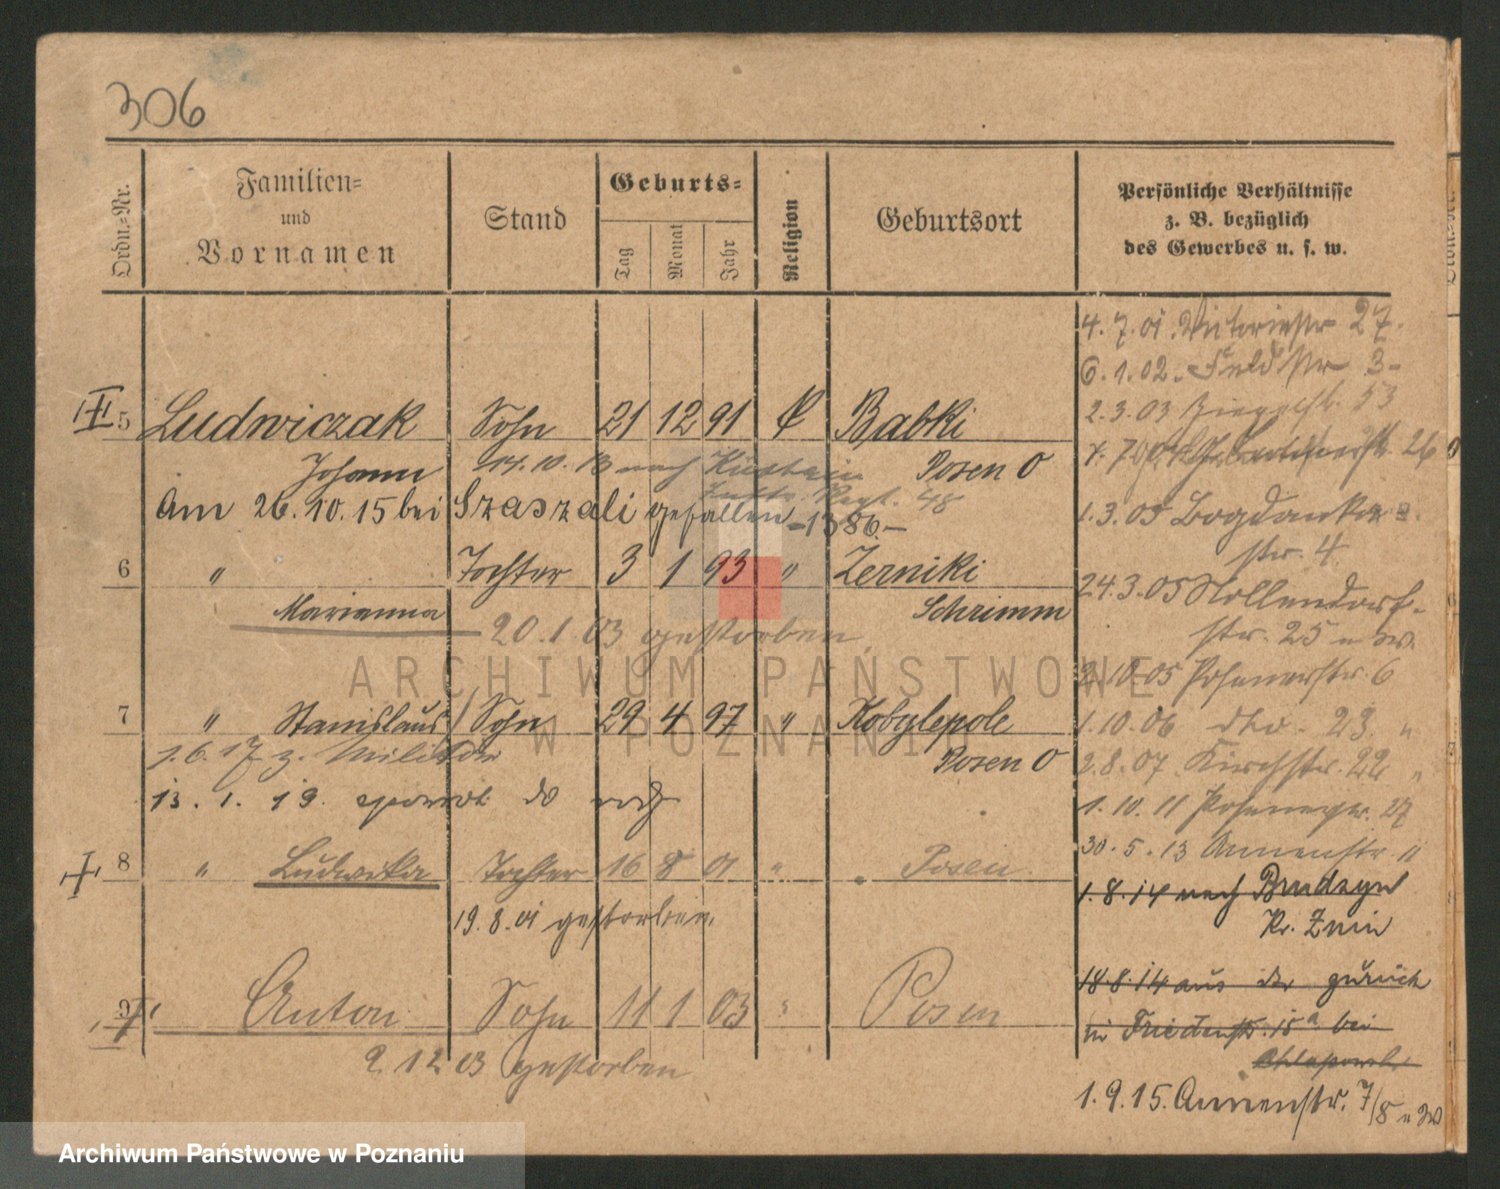 306
Ordn.-Nr.
Familien-
und
Vornamen
Stand
Geburts-
Tag
Monat
Jahr
Religion
Geburtsort
Persönliche Verhältnisse
z. B. bezüglich
des Gewerbes u. s. w.
4. 7. 01. Victoriastr 27.
6. 1. 02. Feldstr 3
2. 3. 03 Ziegelstr. 53
5 Ludwiczak Sohn 21 12 91 K Babki
Johann 14. 10. 13 nach Küstrin Posen O
Inftr. Regt. 48
Am 26. 10. 15 bei Szaszali gefallen -1386.-
1. 3. 05 Bogdanka
str. 4.
6 " Tochter 3 1 93 " Zerniki
Marianna Schrimm
20. 1. 03 gestorben
24. 3. 05 Nollendorf-
str. 25
2. 10. 05 Posenerstr. 6
ARCHIWUM PAŃSTWOWE
W POZNANIU
7 " Stanislaus Sohn 29 4 97 " Kobylepole
1. 6. 17 z. Militär Posen O
13. 1. 19. do
1. 10. 06 dto. 23. "
2. 8. 07. Kirchstr. 22 "
1. 10. 11 Posenerstr. 27
30. 5. 13 Annenstr. 11
8 " Ludwika Tochter 16 8 01 " Posen
19. 8. 01 gestorben.
1. 8. 14 nach Brudzyn
Kr. Znin
9 Anton Sohn 11 1 03 " Posen
2 12 03 gestorben
18. 8. 14 aus der zurück
in Friedenstr. 15a bei
1. 9. 15. Annenstr. 7/8
Archiwum Państwowe w Poznaniu